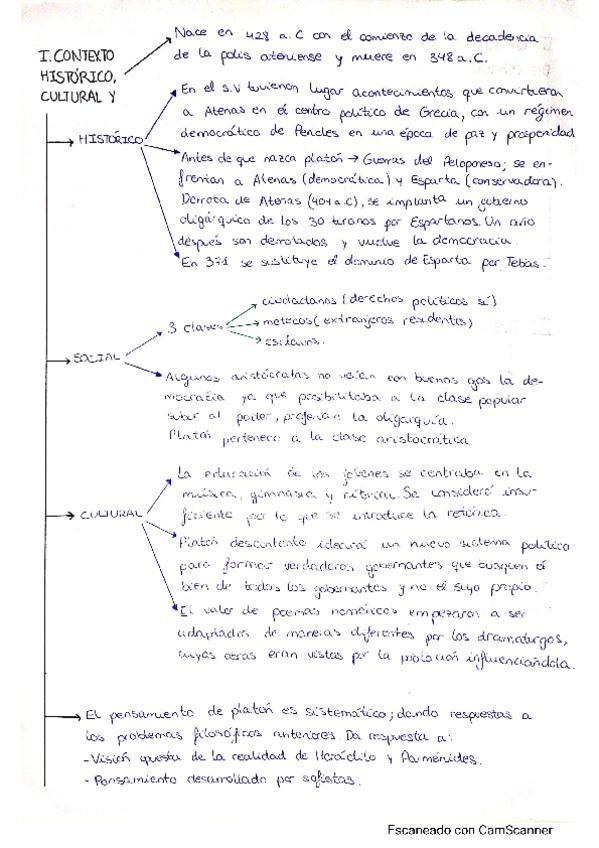 I. CONTEXTO
HISTÓRICO,
CULTURAL Y
Nace en 428 a.C con el comienzo de la decadencia
de la polis ateniense y muere en 348 a.C.
HISTÓRICO
En el s.V tuvieron lugar acontecimientos que convirtieron
a Atenas en el centro político de Grecia, con un régimen
democrático de Pericles en una época de paz y prosperidad
Antes de que nazca platón → Guerras del Peloponeso; se en-
frentan a Atenas (democrática) y Esparta (conservadora).
Derrota de Atenas (404 a.C), se implanta un gobierno
oligárquico de los 30 tiranos por Espartanos. Un año
después son derrotados y vuelve la democracia.
En 371 se sustituye el dominio de Esparta por Tebas.
SOCIAL
3 clases
ciudadanos (derechos políticos sí)
metecos (extranjeros residentes)
esclavos.
Algunos aristócratas no veían con buenos ojos la de-
mocracia ya que posibilitaba a la clase popular
subir al poder, preferían la oligarquía.
Platón pertenece a la clase aristocrática
CULTURAL
La educación de los jóvenes se centraba en la
música, gimnasia y rítorica. Se consideró insu-
ficiente por lo que se introduce la retórica.
Platón descontento ideará un nuevo sistema político
para formar verdaderos gobernantes que busquen el
bien de todos los gobernantes y no el suyo propio.
El valor de poemas homéricos empezaron a ser
adaptados de maneras diferentes por los dramaturgos,
cuyas obras eran vistas por la población influenciándola.
El pensamiento de platón es sistemático; dando respuestas a
los problemas filosóficos anteriores. Da respuesta a:
-Visión opuesta de la realidad de Heráclito y Parménides.
- Pensamiento desarrollado por sofistas.
Escaneado con CamScanner